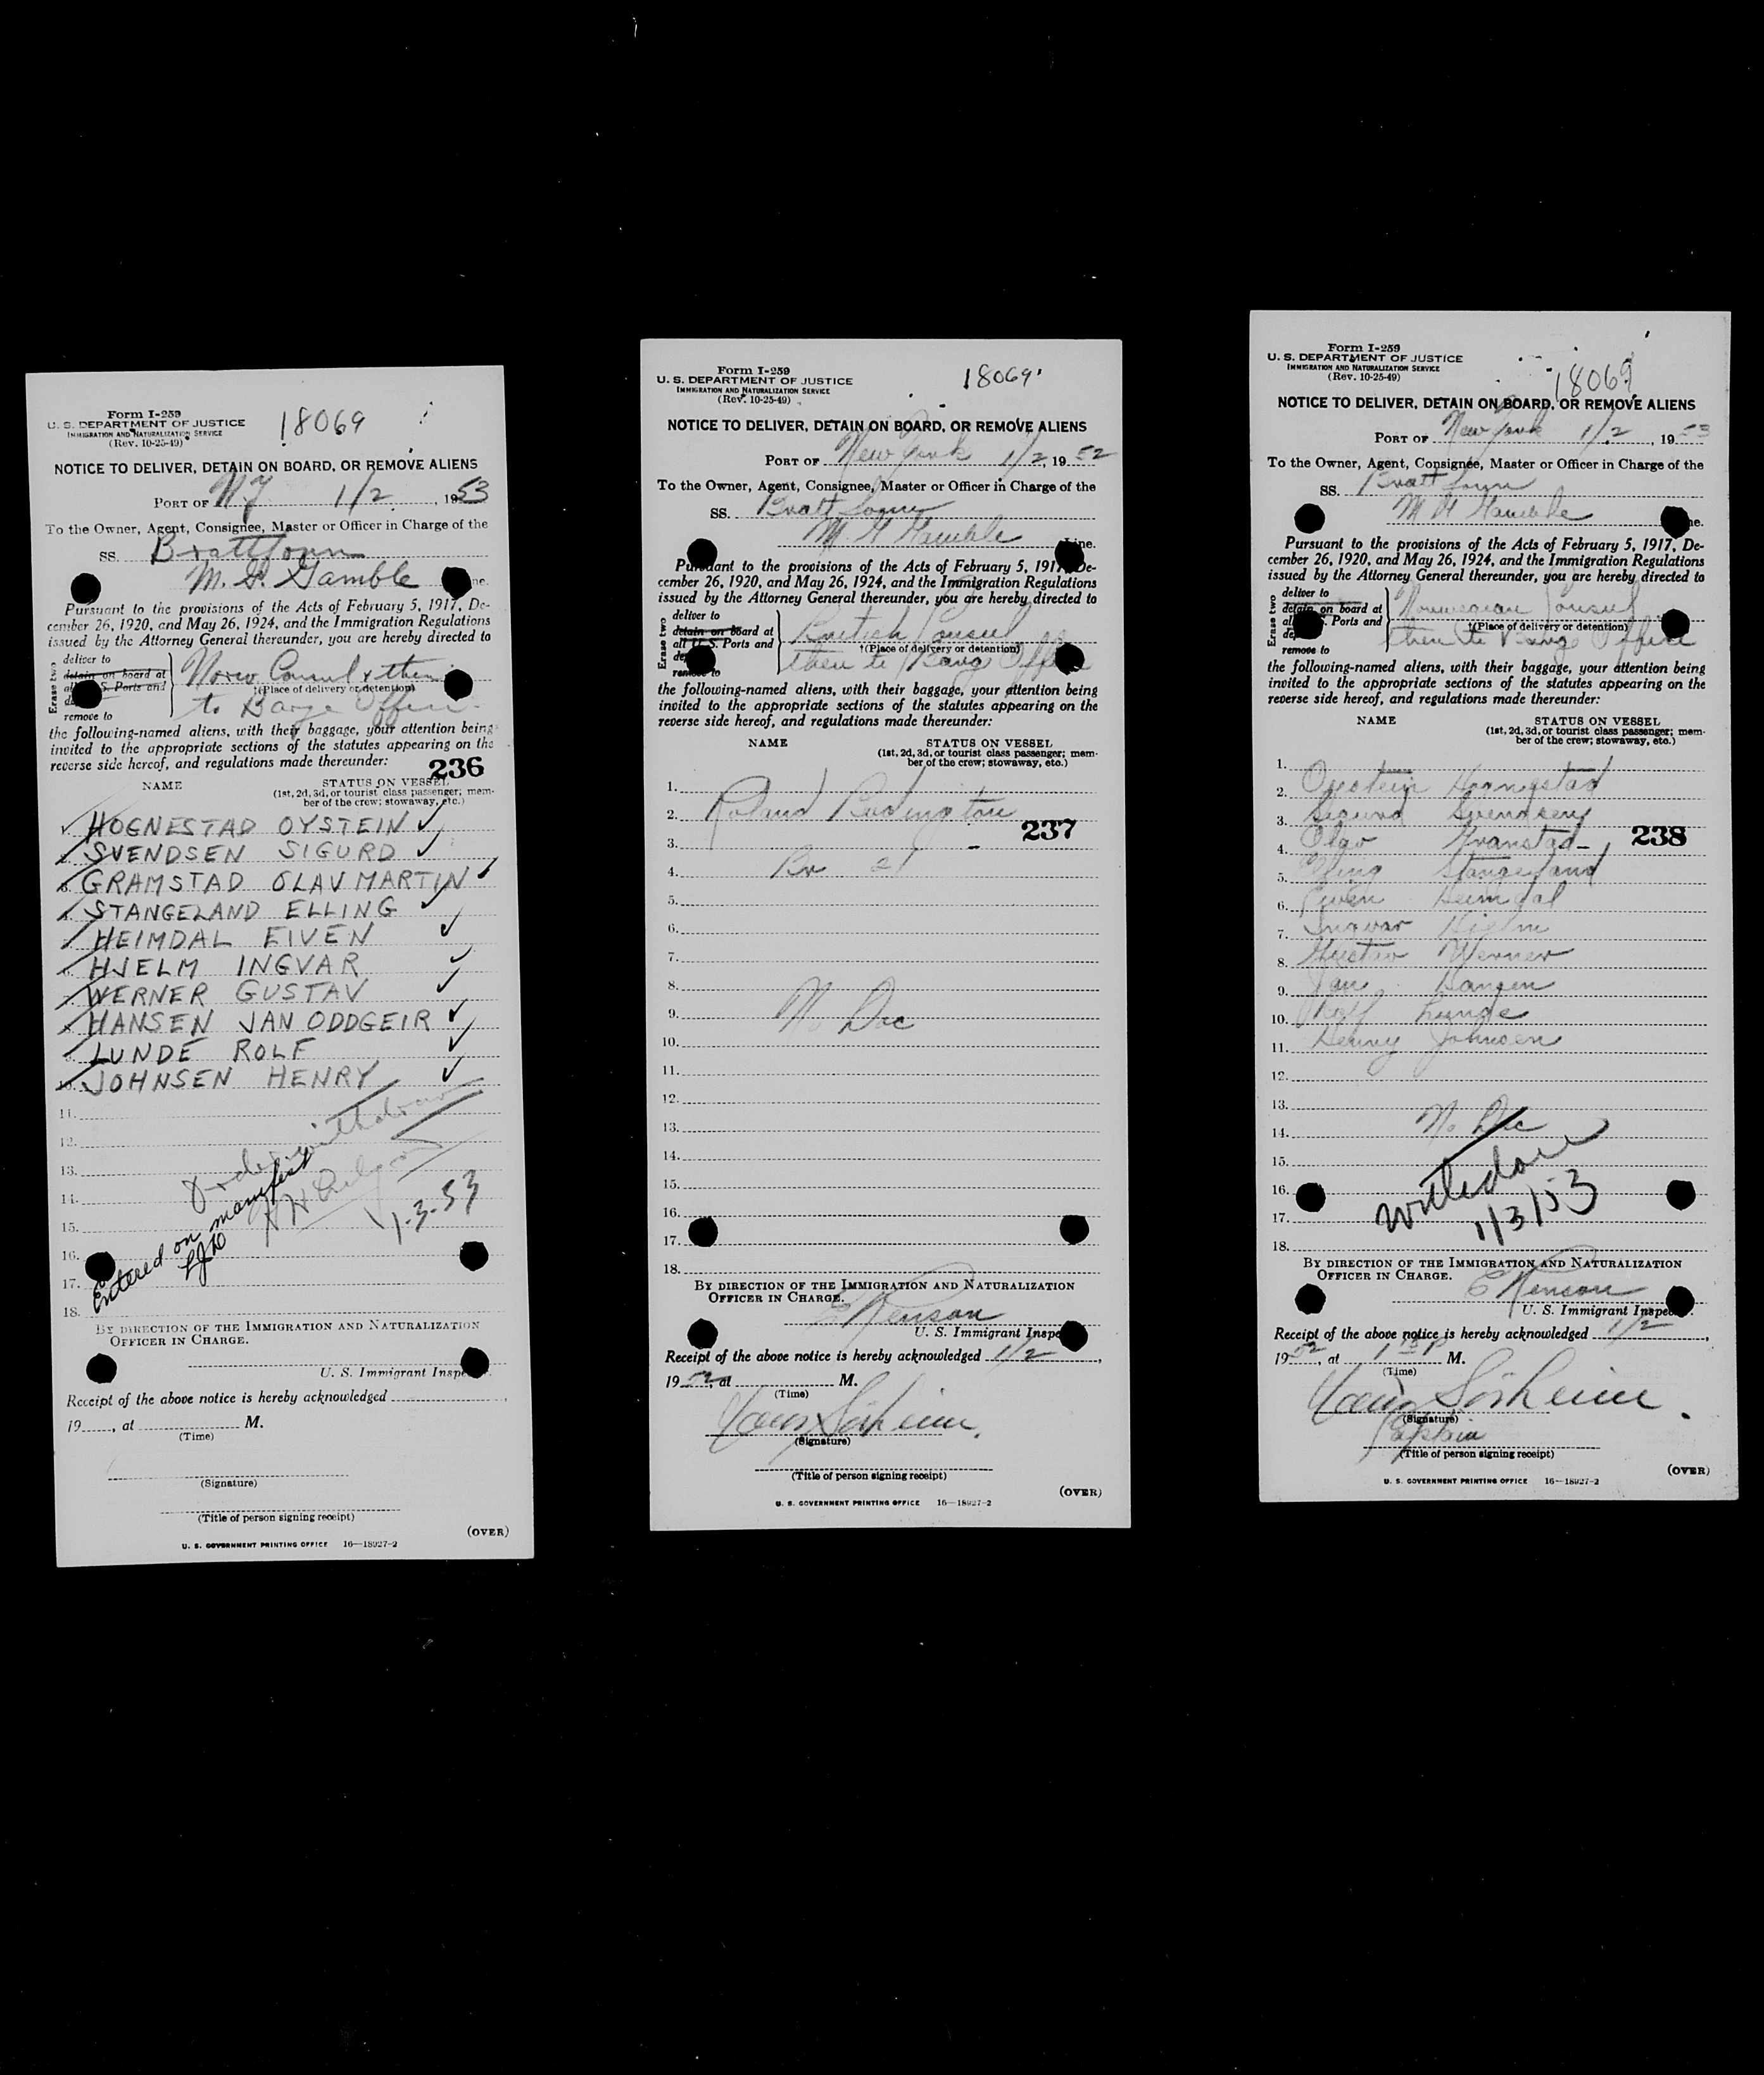 Form I-259
U. S. DEPARTMENT OF JUSTICE
IMMIGRATION AND NATURALIZATION SERVICE
(Rev. 10-25-49)
18069
NOTICE TO DELIVER, DETAIN ON BOARD, OR REMOVE ALIENS
PORT OF N.Y 1/2, 1953
To the Owner, Agent, Consignee, Master or Officer in Charge of the
SS.
M. Gamble
Pursuant to the provisions of the Acts of February 5, 1917, De-
cember 26, 1920, and May 26, 1924, and the Immigration Regulations
issued by the Attorney General thereunder, you are hereby directed to
Erase two
deliver to
detain on board at
S. Ports and
remove to
Consul & then
†(Place of delivery or detention)
to Barge Office
the following-named aliens, with their baggage, your attention being
invited to the appropriate sections of the statutes appearing on the
reverse side hereof, and regulations made thereunder:
236
NAME STATUS ON VESSEL
(1st, 2d, 3d, or tourist class passenger; mem-
ber of the crew; stowaway, etc.)
HOGNESTAD OYSTEIN ✓
SVENDSEN SIGURD ✓
GRAMSTAD OLAV MARTIN ✓
STANGELAND ELLING ✓
HEIMDAL EIVEN ✓
HJELM INGVAR ✓
WERNER GUSTAV ✓
HANSEN JAN ODDGEIR ✓
LUNDE ROLF ✓
JOHNSEN HENRY ✓
11.
12.
13.
14.
15.
16.
17.
18.
Order withdrawn
1-3-53
Entered on manifest
BY DIRECTION OF THE IMMIGRATION AND NATURALIZATION
OFFICER IN CHARGE.
U. S. Immigrant Inspe
Receipt of the above notice is hereby acknowledged
19, at M.
(Time)
(Signature)
(Title of person signing receipt)
(OVER)
U. S. GOVERNMENT PRINTING OFFICE 16—18927-2
Form I-259
U. S. DEPARTMENT OF JUSTICE
IMMIGRATION AND NATURALIZATION SERVICE
(Rev. 10-25-49)
18069
NOTICE TO DELIVER, DETAIN ON BOARD, OR REMOVE ALIENS
PORT OF New York 1/2, 1952
To the Owner, Agent, Consignee, Master or Officer in Charge of the
SS. Bratt
M. Gamble
Pursuant to the provisions of the Acts of February 5, 1917, De-
cember 26, 1920, and May 26, 1924, and the Immigration Regulations
issued by the Attorney General thereunder, you are hereby directed to
Erase two
deliver to
detain on board at
all U. S. Ports and
remove to
British Consul
†(Place of delivery or detention)
then to Barg Office
the following-named aliens, with their baggage, your attention being
invited to the appropriate sections of the statutes appearing on the
reverse side hereof, and regulations made thereunder:
NAME STATUS ON VESSEL
(1st, 2d, 3d, or tourist class passenger; mem-
ber of the crew; stowaway, etc.)
1.
2. Roland
237
3.
4. Br 21
5.
6.
7.
8.
9. No Doc
10.
11.
12.
13.
14.
15.
16.
17.
18.
BY DIRECTION OF THE IMMIGRATION AND NATURALIZATION
OFFICER IN CHARGE.
E Renson
U. S. Immigrant Inspe
Receipt of the above notice is hereby acknowledged 1/2,
1952, at M.
(Time)
(Signature)
(Title of person signing receipt)
(OVER)
U. S. GOVERNMENT PRINTING OFFICE 16—18927-2
Form I-259
U. S. DEPARTMENT OF JUSTICE
IMMIGRATION AND NATURALIZATION SERVICE
(Rev. 10-25-49)
18069
NOTICE TO DELIVER, DETAIN ON BOARD, OR REMOVE ALIENS
PORT OF New York 1/2, 1953
To the Owner, Agent, Consignee, Master or Officer in Charge of the
SS. Bratt
M Gamble
Pursuant to the provisions of the Acts of February 5, 1917, De-
cember 26, 1920, and May 26, 1924, and the Immigration Regulations
issued by the Attorney General thereunder, you are hereby directed to
Erase two
deliver to
detain on board at
S. Ports and
remove to
Norwegian Consul
†(Place of delivery or detention)
then to Barg Office
the following-named aliens, with their baggage, your attention being
invited to the appropriate sections of the statutes appearing on the
reverse side hereof, and regulations made thereunder:
NAME STATUS ON VESSEL
(1st, 2d, 3d, or tourist class passenger; mem-
ber of the crew; stowaway, etc.)
1.
2. Oystein
3. Sigurd Svendsen
238
4. Olav Gramstad
5. Elling Stangeland
6. Eiven Heimdal
7. Ingvar Hjelm
8. Gustav Werner
9. Jan Hansen
10. Rolf Lunde
11. Henry Johnsen
12.
13.
14. No Doc
15.
16.
17.
18.
withdrawn
1/3/53
BY DIRECTION OF THE IMMIGRATION AND NATURALIZATION
OFFICER IN CHARGE.
E Renson
U. S. Immigrant Inspe
Receipt of the above notice is hereby acknowledged 1/2,
1952, at 1 P M.
(Time)
(Signature)
Captain
(Title of person signing receipt)
(OVER)
U. S. GOVERNMENT PRINTING OFFICE 16—18927-2